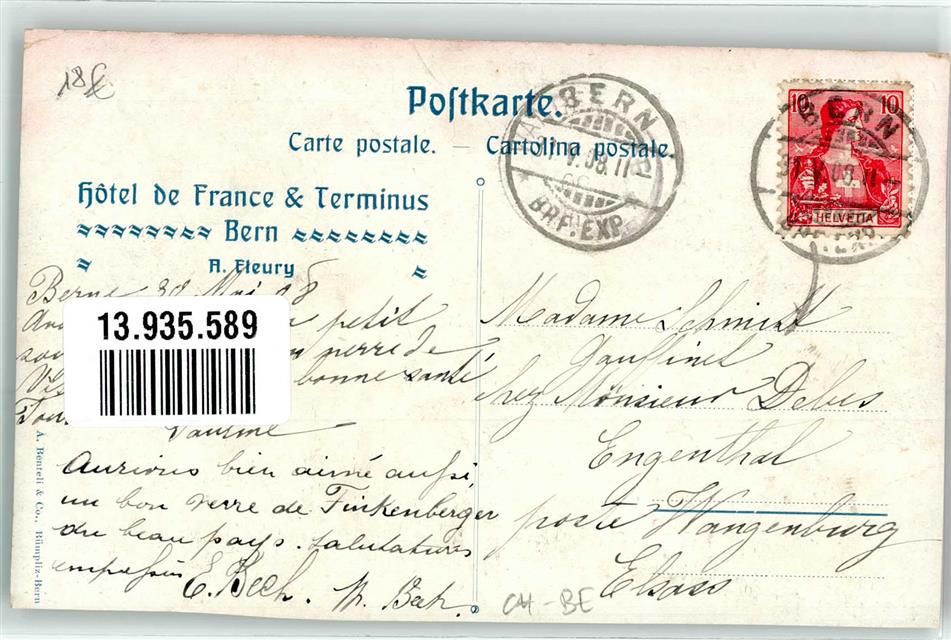 18£
Postkarte.
Carte postale. — Cartolina postale.
Hôtel de France & Terminus
Bern
A. Fleury
BERN
31.V.08.11
BRF.EXP.
10 10
HELVETIA
BERN
31.V.08.
Berne 30 Mai 08
petit
verre de
bonne santé
13.935.589
Madame Schmidt
Gauffinet
chez Monsieur Debes
Engenthal
poste Wangenburg
Elsass
Aurions bien aimé aussi,
un bon verre de Finkenberger
du beau pays. Salutations
empressées E. Bech. M. Bech.
A. Benteli & Co., Bümpliz-Bern
CH-BE